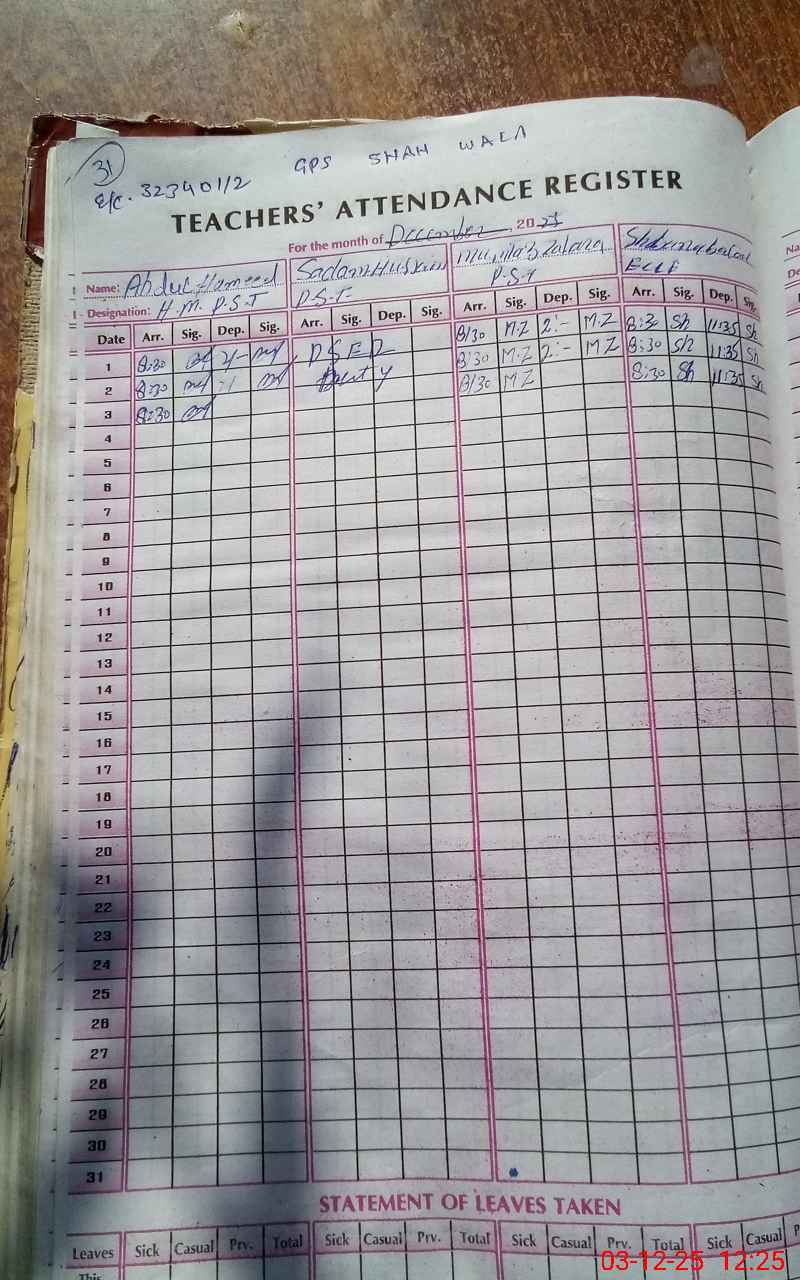 31
E/C. 32340112 GPS SHAH WALA
TEACHERS' ATTENDANCE REGISTER
For the month of December, 2025
Name: Abdul Hameed Sadam Hussain Mumtaz
Designation: H.M. P.S.T P.S.T P.S.T
Date Arr. Sig. Dep. Sig. Arr. Sig. Dep. Sig. Arr. Sig. Dep. Sig. Arr. Sig. Dep. Sig.
1 8:30 PSER 8/30 M.Z 2:- M.Z 8:30 Sh 11:35 Sh
2 8:30 Duty 8/30 M.Z 2:- M.Z 8:30 Sh 11:35 Sh
3 8:30 8/30 M.Z 8:30 Sh 11:35 Sh
4
5
6
7
8
9
10
11
12
13
14
15
16
17
18
19
20
21
22
23
24
25
26
27
28
29
30
31
STATEMENT OF LEAVES TAKEN
Leaves Sick Casual Prv. Total Sick Casual Prv. Total Sick Casual Prv. Total Sick Casual
This
03-12-25 12:25